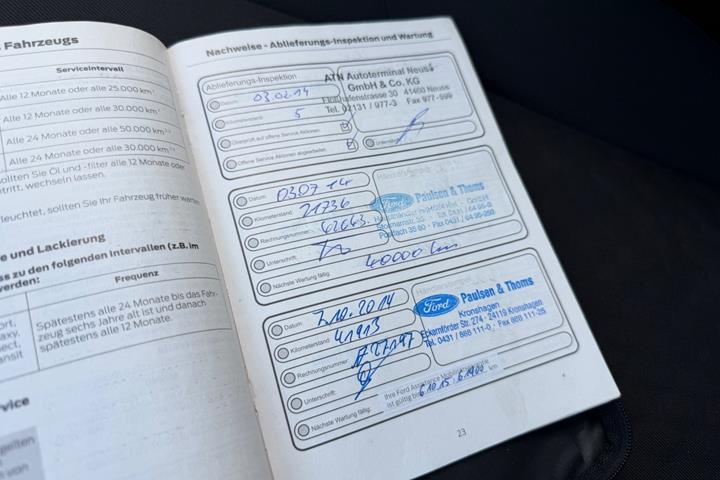 Fahrzeugs
Serviceintervall
Alle 12 Monate oder alle 25.000 km
Alle 12 Monate oder alle 30.000 km
Alle 24 Monate oder alle 50.000 km
Alle 24 Monate oder alle 30.000 km
sollten Sie Öl und -filter alle 12 Monate oder
ntritt, wechseln lassen.
leuchtet, sollten Sie Ihr Fahrzeug früher warten
e und Lackierung
ss zu den folgenden Intervallen (z.B. im
werden:
Frequenz
Spätestens alle 24 Monate bis das Fahr-
zeug sechs Jahre alt ist und danach
spätestens alle 12 Monate.
ort,
axy,
ect,
ansit
Service
Nachweise - Ablieferungs-Inspektion und Wartung
Ablieferungs-Inspektion
Datum: 03.02.14
Kilometerstand: 5
Überprüft auf offene Service Aktionen
Offene Service Aktionen abgearbeitet
ATN Autoterminal Neuss
GmbH & Co. KG
41460 Neuss
Tel. 02131 / 977-3 Fax 977-599
Datum: 03.07 14
Kilometerstand: 21736
Rechnungsnummer: 42663
Unterschrift:
Nächste Wartung fällig: 40000 km
Ford Paulsen & Thoms
Datum: 7.10.2014
Kilometerstand: 41913
Rechnungsnummer: 727197
Unterschrift:
Nächste Wartung fällig:
Ford Paulsen & Thoms
Kronshagen
Eckernförder Str. 274 · 24119 Kronshagen
Tel. 0431 / 888 111-0 · Fax 888 111-25
Ihre Ford Assistance Mobilitätsgarantie
ist gültig bis 6.10.15, 61900 km
23